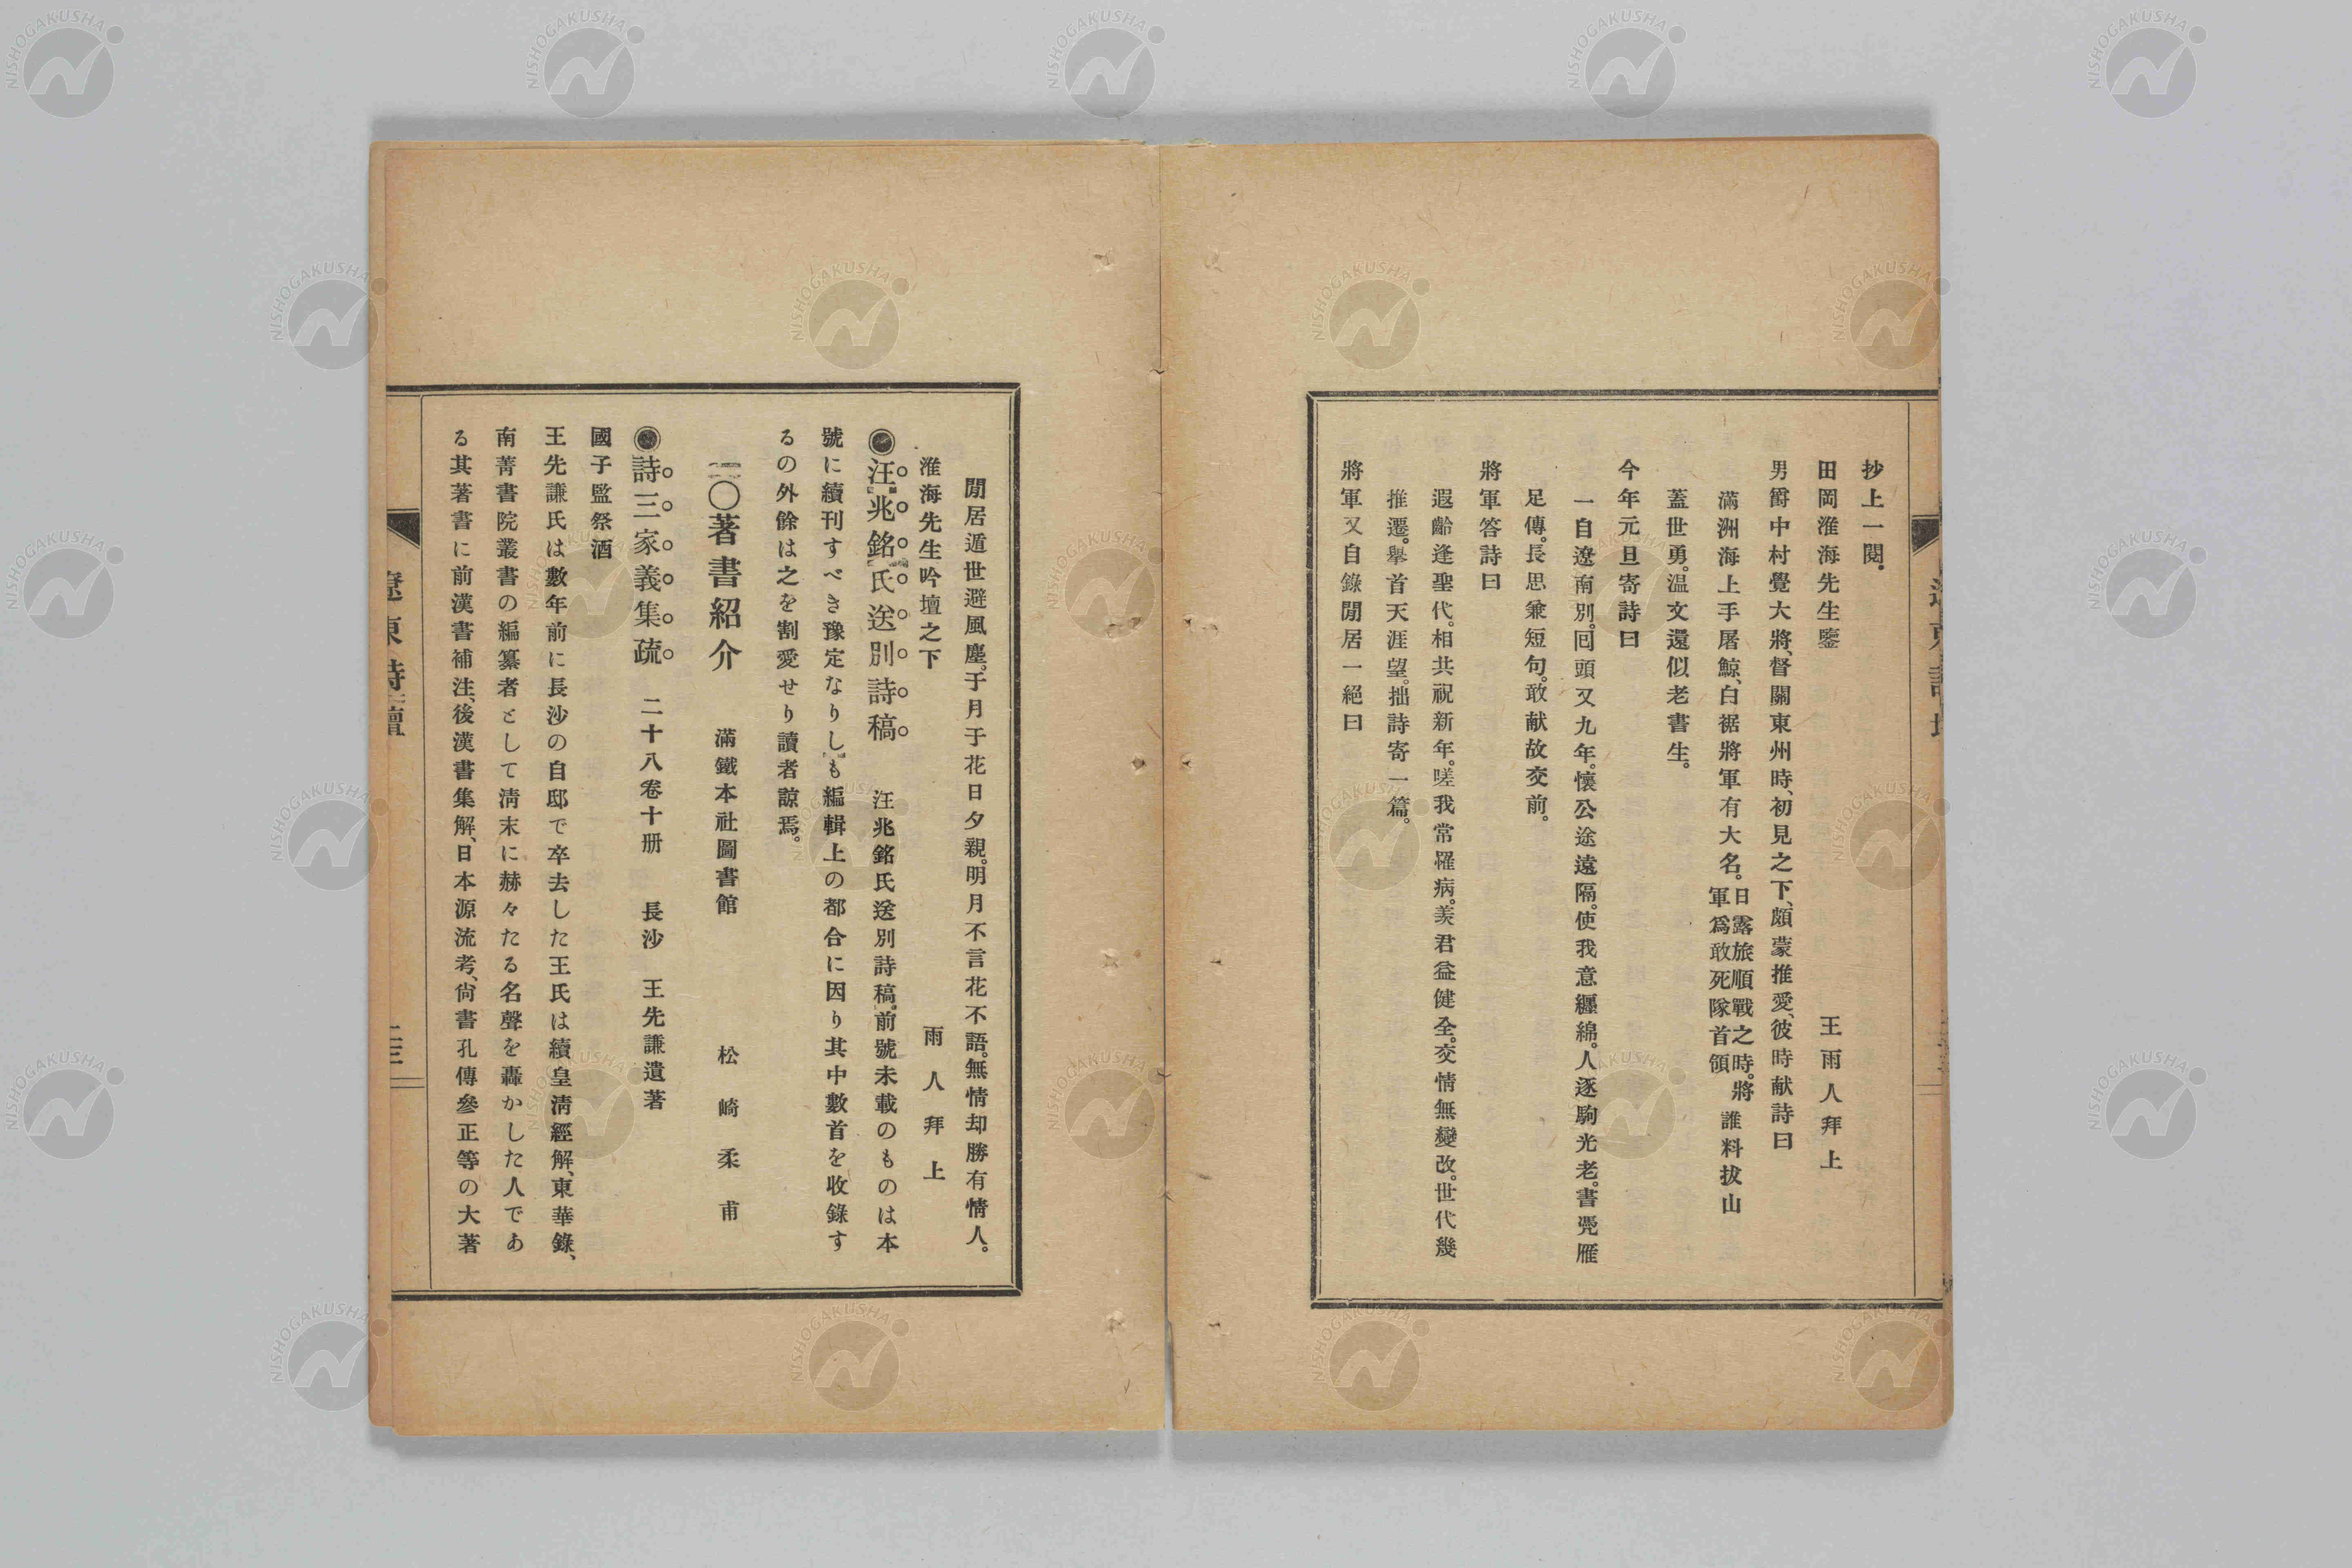 抄上一閱。
田岡淮海先生鑒　王雨人拜上
男爵中村覺大將、督關東州時、初見之下、頗蒙推愛、彼時献詩曰
滿洲海上手屠鯨、白裾將軍有大名。日露旅順戰之時。將軍爲敢死隊首領誰料拔山
蓋世勇。温文還似老書生。
今年元旦寄詩曰
一自遼南別。囘頭又九年。懷公途遠隔。使我意纒綿。人逐駒光老。書凴雁
足傳。長思兼短句。敢献故交前。
將軍答詩曰
遐齡逢聖代。相共祝新年。嗟我常罹病。羨君益健全。交情無變改。世代幾
推遷。擧首天涯望。拙詩寄一篇。
將軍又自錄閒居一絕曰
閒居遁世避風塵。于月于花日夕親。明月不言花不語。無情却勝有情人。
淮海先生吟壇之下　雨人拜上
◉汪兆銘氏送別詩稿　汪兆銘氏送別詩稿。前號未載のものは本
號に續刊すべき豫定なりしも編輯上の都合に因り其中數首を收錄す
るの外餘は之を割愛せり讀者諒焉。
二〇著書紹介　滿鐵本社圖書館　松崎柔甫
◉詩三家義集疏　二十八卷十册　長沙　王先謙遺著
國子監祭酒
王先謙氏は數年前に長沙の自邸で卒去した王氏は續皇淸經解、東華錄、
南菁書院叢書の編纂者として淸末に赫々たる名聲を轟かした人であ
る其著書に前漢書補注、後漢書集解、日本源流考、尙書孔傳參正等の大著
遼東詩壇
NISHOGAKUSHA